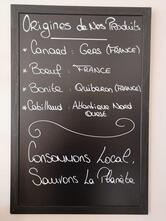 Origines de Nos Produits
* Canard : Gers (FRANCE)
* Boeuf : FRANCE
* Bonite : Quiberon (FRANCE)
* Cabillaud : Atlantique Nord
OUEST
Consommons Local,
Sauvons La Planète